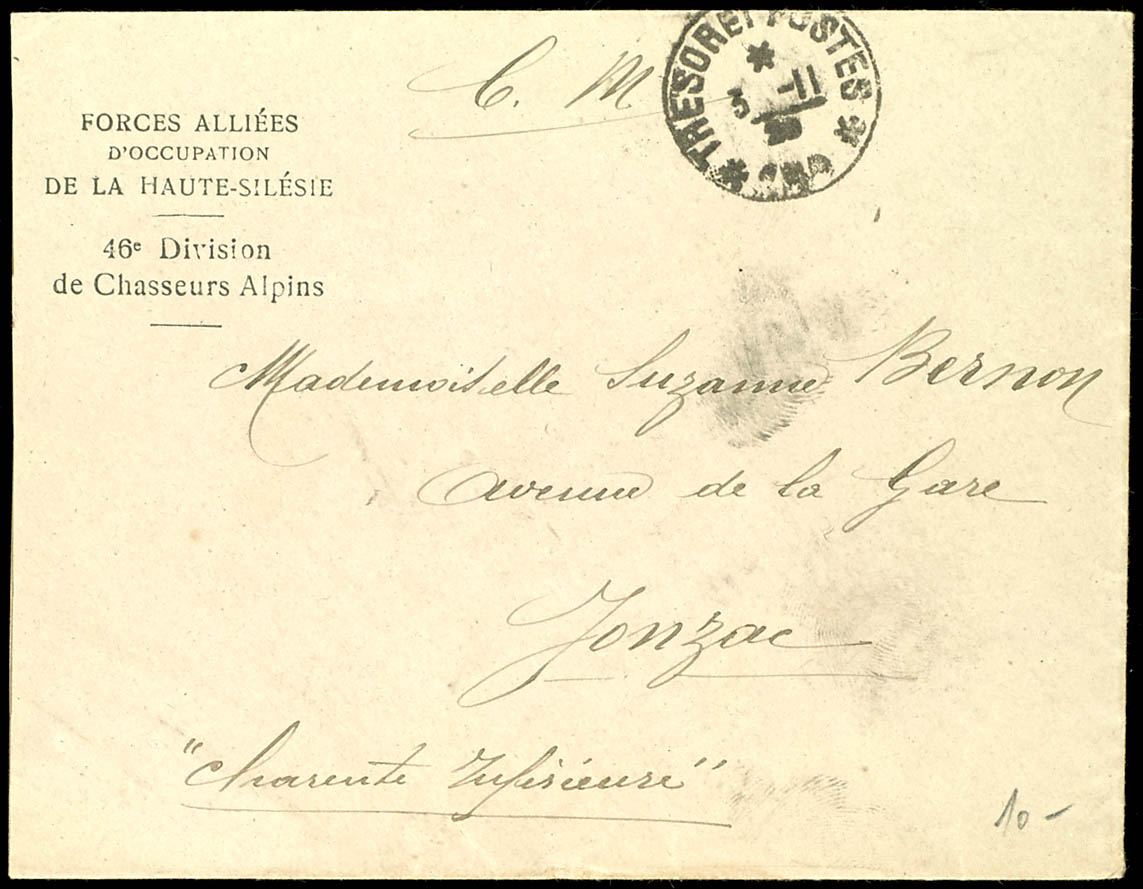 C. M
TRESOR ET POSTES
FORCES ALLIÉES
D'OCCUPATION
DE LA HAUTE-SILÉSIE
46e Division
de Chasseurs Alpins
Mademoiselle Suzanne Bernon
avenue de la Gare
Jonzac
"Charente Inférieure"
10-